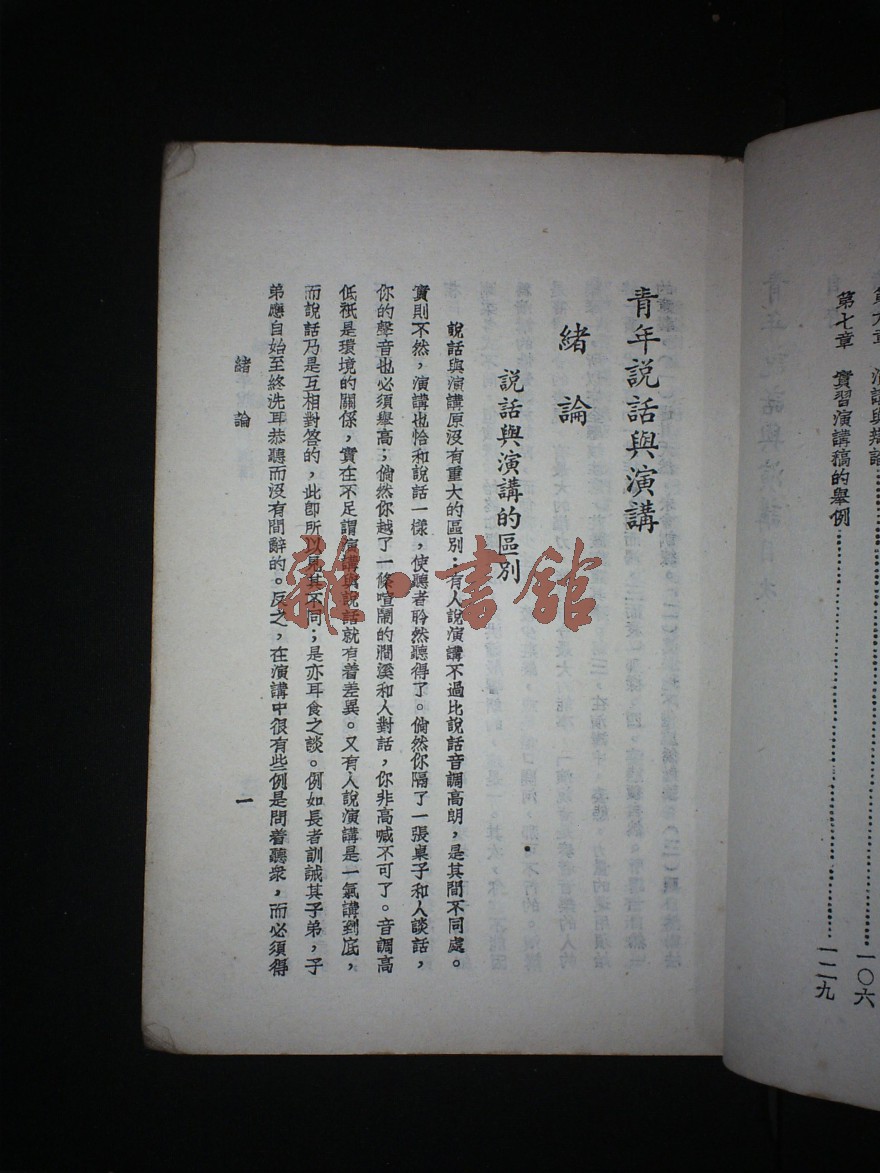 第七章　實習演講稿的舉例……一二九
一〇六
青年說話與演講
緒論
說話與演講的區別
說話與演講原沒有重大的區別；有人說演講不過比說話音調高朗，是其間不同處。
實則不然，演講也恰和說話一樣，使聽者聆然聽得了。倘然你隔了一張桌子和人談話，
你的聲音也必須舉高；倘然你越了一條喧鬧的澗溪和人對話，你非高喊不可了。音調高
低祇是環境的關係，實在不足謂演講與說話就有着差異。又有人說演講是一氣講到底，
而說話乃是互相對答的，此卽所以見其不同；是亦耳食之談。例如長者訓誡其子弟，子
弟應自始至終洗耳恭聽而沒有間辭的。反之，在演講中很有些例是問着聽衆，而必須得
緒論
一
雜·書館